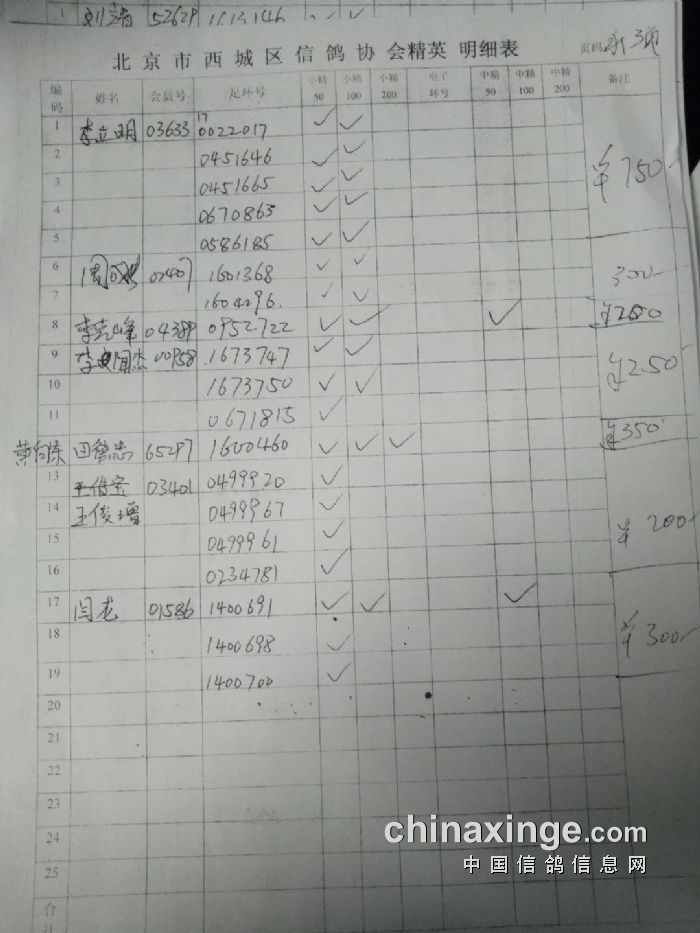 1 刘 52629
北京市西城区信鸽协会精英 明细表 页码
编码 姓名 会员号 足环号 小精50 小精100 小精200 电子环号 中精50 中精100 中精200 备注
1 李立明 03633 17 0022017 ✓ ✓
2 0451646 ✓ ✓
3 0451665 ✓ ✓ ¥750
4 0670863 ✓ ✓
5 0586185 ✓ ✓
6 02407 1601368 ✓ ✓ 300
7 1604296 ✓ ✓
8 李克峰 04389 0952722 ✓ ✓ ✓ ¥200
9 00958 1673747 ✓ ✓ ¥250
10 1673750 ✓ ✓
11 0671815 ✓
田德忠 65297 1600460 ✓ ✓ ✓ ¥350
13 03401 0499920 ✓
14 王俊增 0499967 ✓
15 0499961 ✓ ¥200
16 0234781 ✓
17 闫龙 01586 1400691 ✓ ✓ ✓
18 1400698 ✓ ¥300
19 1400700 ✓
20
21
22
23
24
25
合
chinaxinge.com
中国信鸽信息网